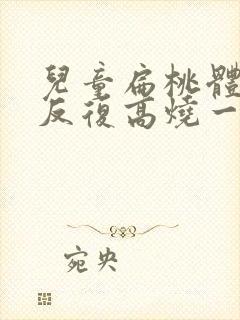 兒童扁桃體
反復高燒一
宛央